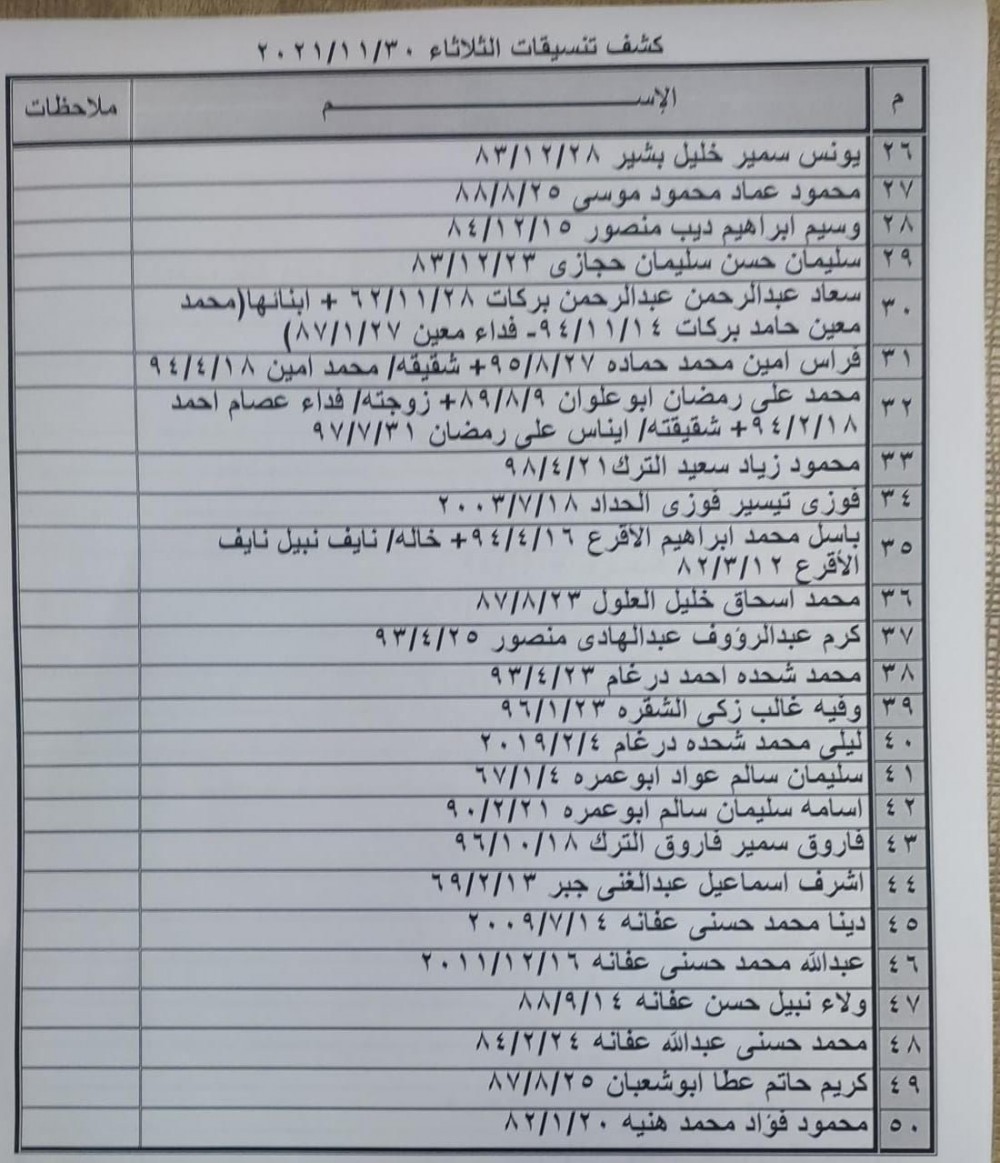 كشف تنسيقات الثلاثاء ٢٠٢١/١١/٣٠
م الإســـــم ملاحظات
٢٦ يونس سمير خليل بشير ٨٣/١٢/٢٨
٢٧ محمود عماد محمود موسى ٨٨/٨/٢٥
٢٨ وسيم ابراهيم ديب منصور ٨٤/١٢/١٥
٢٩ سليمان حسن سليمان حجازى ٨٣/١٢/٢٣
٣٠ سعاد عبدالرحمن عبدالرحمن بركات ٦٢/١١/٢٨ + ابنائها(محمد
معين حامد بركات ٩٤/١١/١٤- فداء معين ٨٧/١/٢٧)
٣١ فراس امين محمد حماده ٩٥/٨/٢٧+ شقيقه/ محمد امين ٩٤/٤/١٨
٣٢ محمد على رمضان ابوعلوان ٨٩/٨/٩+ زوجته/ فداء عصام احمد
٩٤/٢/١٨+ شقيقته/ ايناس على رمضان ٩٧/٧/٣١
٣٣ محمود زياد سعيد الترك٩٨/٤/٢١
٣٤ فوزى تيسير فوزى الحداد ٢٠٠٣/٧/١٨
٣٥ باسل محمد ابراهيم الأقرع ٩٤/٤/١٦+ خاله/ نايف نبيل نايف
الأقرع ٨٢/٣/١٢
٣٦ محمد اسحاق خليل العلول ٨٧/٨/٢٣
٣٧ كرم عبدالرؤوف عبدالهادى منصور ٩٣/٤/٢٥
٣٨ محمد شحده احمد درغام ٩٣/٤/٢٣
٣٩ وفيه غالب زكى الشقره ٩٦/١/٢٣
٤٠ ليلى محمد شحده درغام ٢٠١٩/٢/٤
٤١ سليمان سالم عواد ابوعمره ٦٧/١/٤
٤٢ اسامه سليمان سالم ابوعمره ٩٠/٢/٢١
٤٣ فاروق سمير فاروق الترك ٩٦/١٠/١٨
٤٤ اشرف اسماعيل عبدالغنى جبر ٦٩/٢/١٣
٤٥ دينا محمد حسنى عفانه ٢٠٠٩/٧/١٤
٤٦ عبدالله محمد حسنى عفانه ٢٠١١/١٢/١٦
٤٧ ولاء نبيل حسن عفانه ٨٨/٩/١٤
٤٨ محمد حسنى عبدالله عفانه ٨٤/٢/٢٤
٤٩ كريم حاتم عطا ابوشعبان ٨٧/٨/٢٥
٥٠ محمود فؤاد محمد هنيه ٨٢/١/٢٠